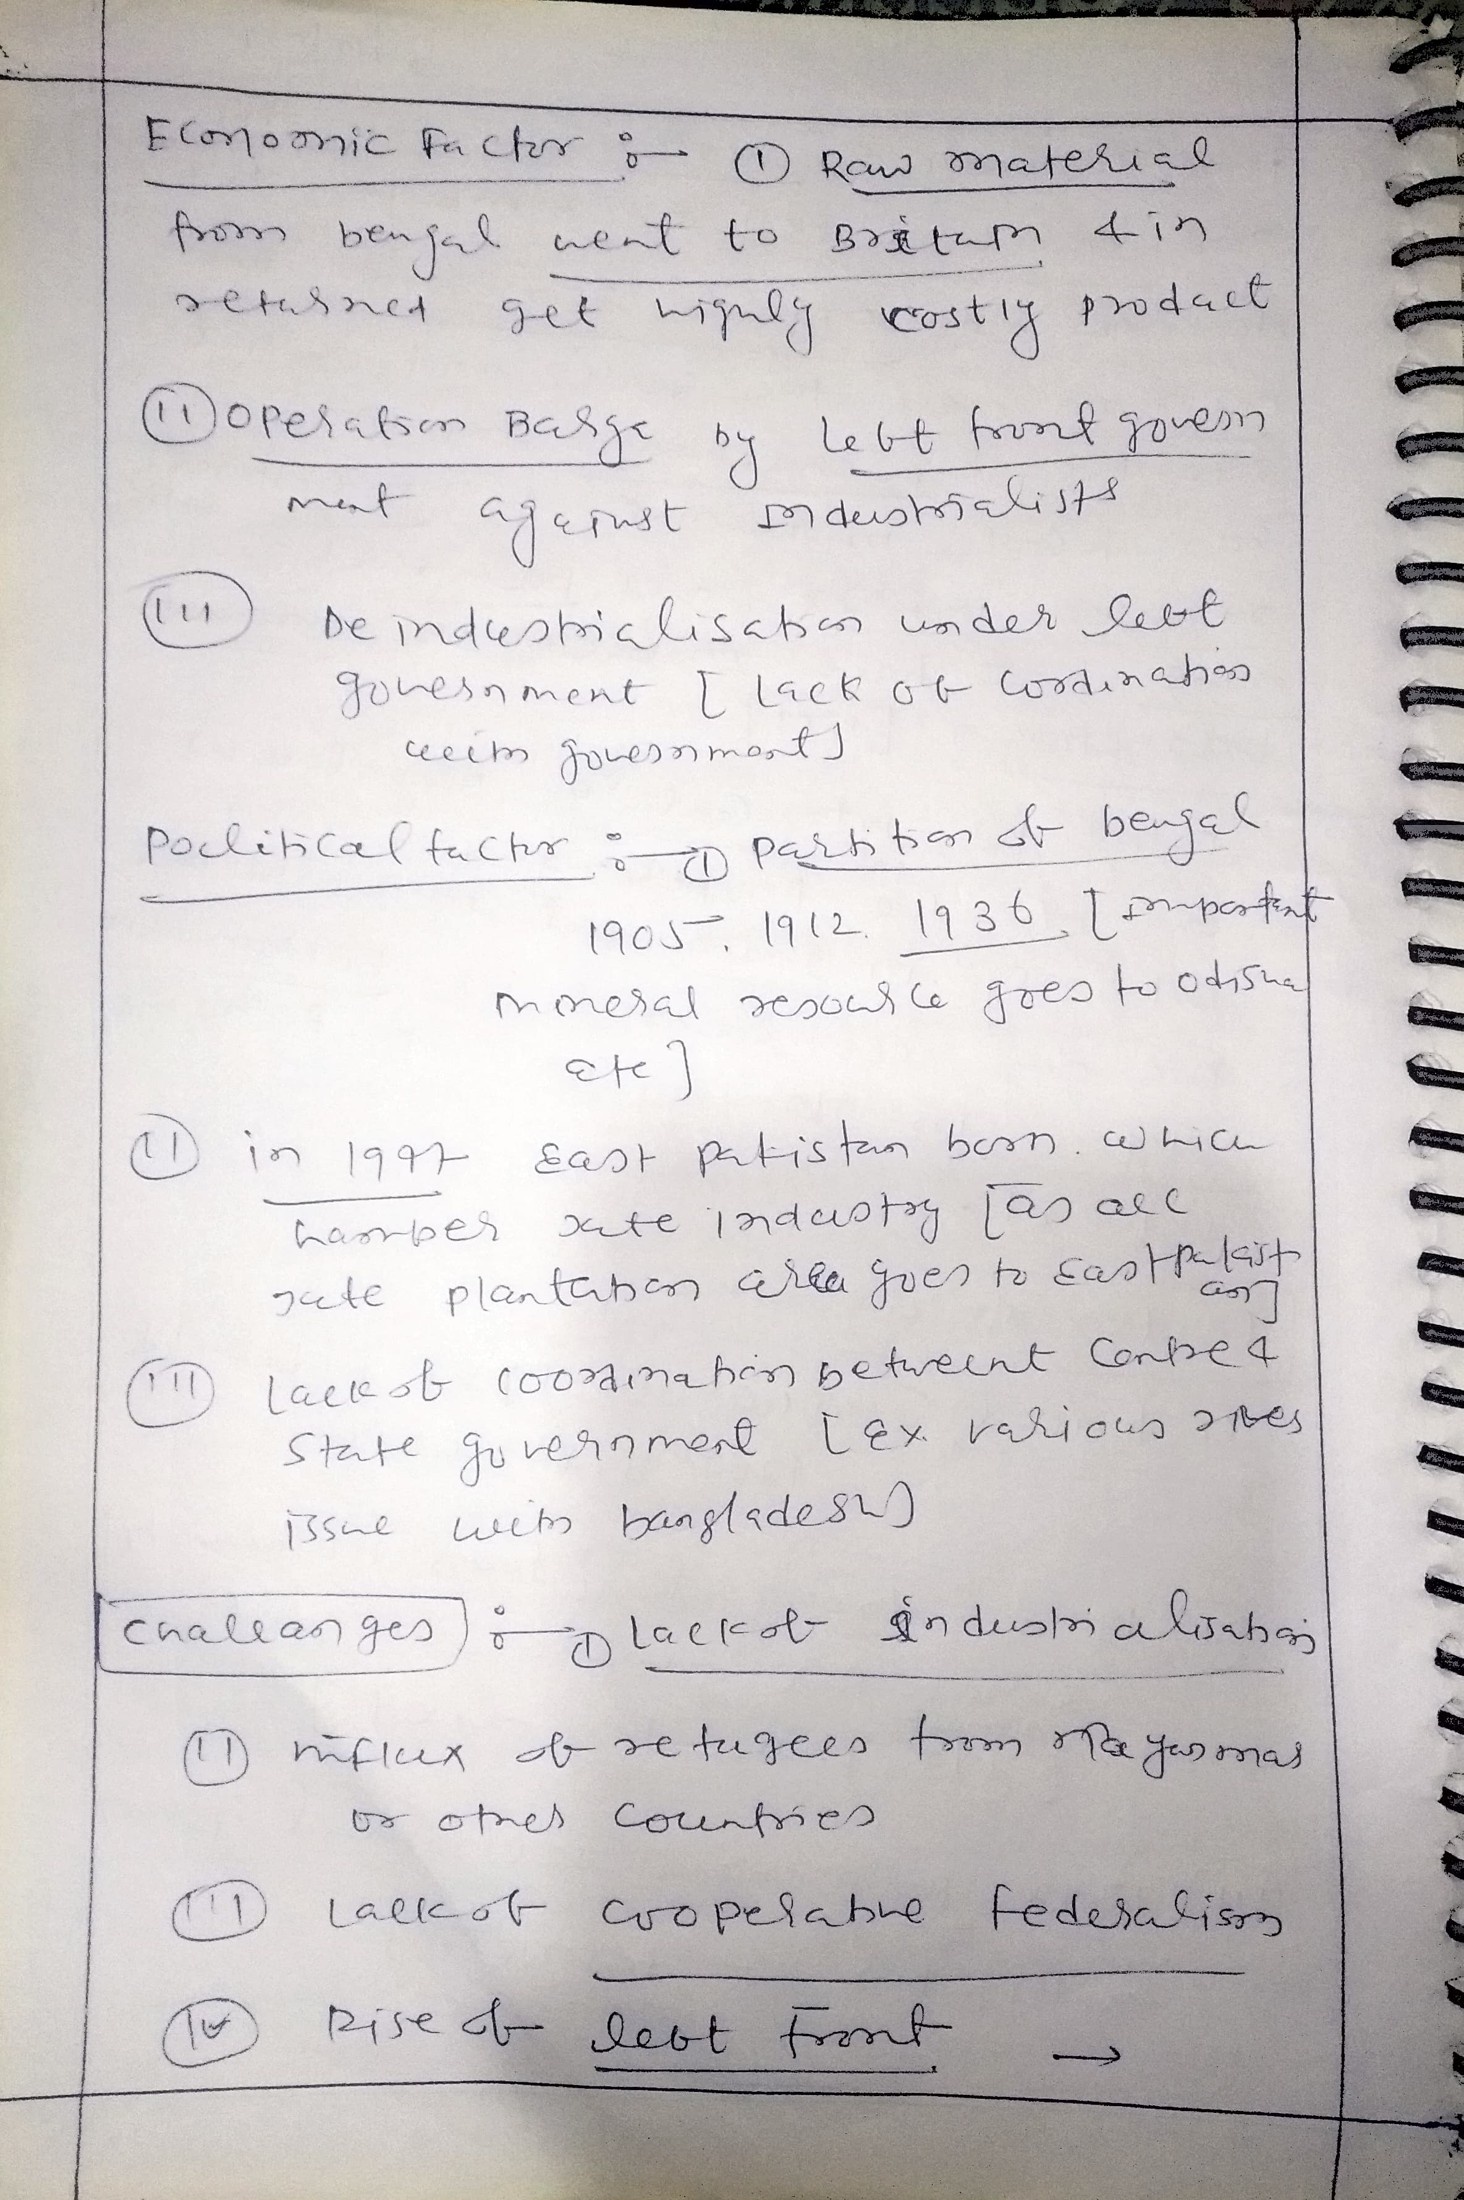 Economic Factor :- ① Raw material
from bengal went to Britain & in
returned get highly costly product
(ii) operation Barga by left front govern
ment against industrialists
(iii) Deindustrialisation under left
government [ Lack of cordination
with government]
Poelitical factor :- ① Partition of bengal
1905, 1912, 1936 [ important
mineral resource goes to odisha
etc ]
(ii) in 1997 East pakistan born. which
hamper jute industry [as all
jute plantation area goes to East pakist
an]
(iii) Lack of coordination betweent Centre &
State government [ Ex. various rives
issue with bangladesh]
challanges :- ① Lack of industrialisation
(ii) influx of refugees from Mayanmar
or other countries
(iii) Lack of cooperative federalism
(iv) Rise of left Front →